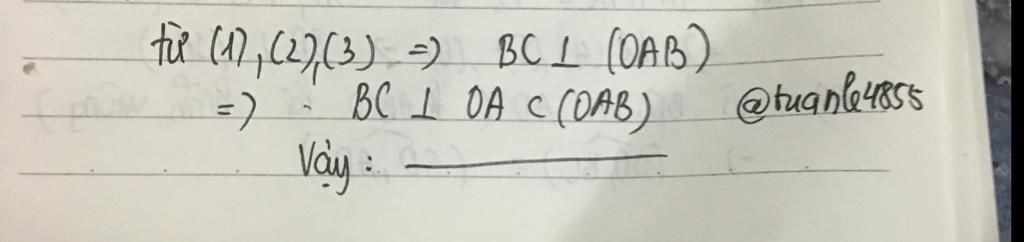 từ (1), (2), (3) => BC ⊥ (OAB)
=> BC ⊥ OA ⊂ (OAB) @tuanle4855
Vậy :